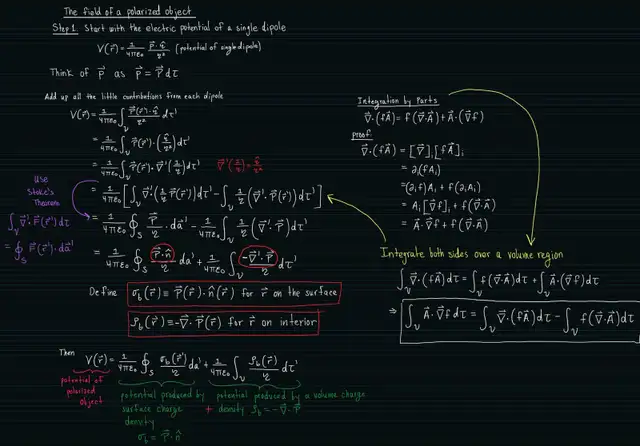 The field of a polarized object
Step 1. Start with the electric potential of a single dipole
V(r⃗) = 1/4πε₀ p⃗·r̂/r² (potential of single dipole)
Think of p⃗ as p⃗ = P⃗ dτ
Add up all the little contributions from each dipole
V(r⃗) = 1/4πε₀ ∫_V P⃗(r⃗')·r̂/r² dτ'
= 1/4πε₀ ∫_V P⃗(r⃗')·(r̂/r²) dτ'
= 1/4πε₀ ∫_V P⃗(r⃗')·∇⃗'(1/r) dτ' ∇⃗'(1/r) = r̂/r²
= 1/4πε₀ [∫_V ∇⃗'·(1/r P⃗(r⃗')) dτ' − ∫_V 1/r (∇⃗'·P⃗(r⃗')) dτ']
Use
Stoke's
Theorem
∫_V ∇⃗'·F⃗(r⃗') dτ'
= ∮_S F⃗(r⃗')·da⃗'
= 1/4πε₀ ∮_S P⃗/r · da⃗' − 1/4πε₀ ∫_V 1/r (∇⃗'·P⃗) dτ'
= 1/4πε₀ ∮_S P⃗·n̂/r da' + 1/4πε₀ ∫_V −∇⃗'·P⃗/r dτ'
Define σ_b(r⃗) ≡ P⃗(r⃗)·n̂(r⃗) for r⃗ on the surface
ρ_b(r⃗) ≡ −∇⃗·P⃗(r⃗) for r⃗ on interior
Then V(r⃗) = 1/4πε₀ ∮_S σ_b(r⃗')/r da' + 1/4πε₀ ∫_V ρ_b(r⃗')/r dτ'
potential of
polarized
object
potential produced by
surface charge
density
σ_b = P⃗·n̂
+
potential produced by a volume charge
density ρ_b = −∇⃗·P⃗
Integration by Parts
∇⃗·(fA⃗) = f(∇⃗·A⃗) + A⃗·(∇⃗f)
proof
∇⃗·(fA⃗) = [∇⃗]ᵢ[fA⃗]ᵢ
= ∂ᵢ(fAᵢ)
= (∂ᵢf)Aᵢ + f(∂ᵢAᵢ)
= Aᵢ[∇⃗f]ᵢ + f(∇⃗·A⃗)
= A⃗·∇⃗f + f(∇⃗·A⃗)
Integrate both sides over a volume region
∫_V ∇⃗·(fA⃗) dτ = ∫_V f(∇⃗·A⃗) dτ + ∫_V A⃗·(∇⃗f) dτ
⇒ ∫_V A⃗·∇⃗f dτ = ∫_V ∇⃗·(fA⃗) dτ − ∫_V f(∇⃗·A⃗) dτ